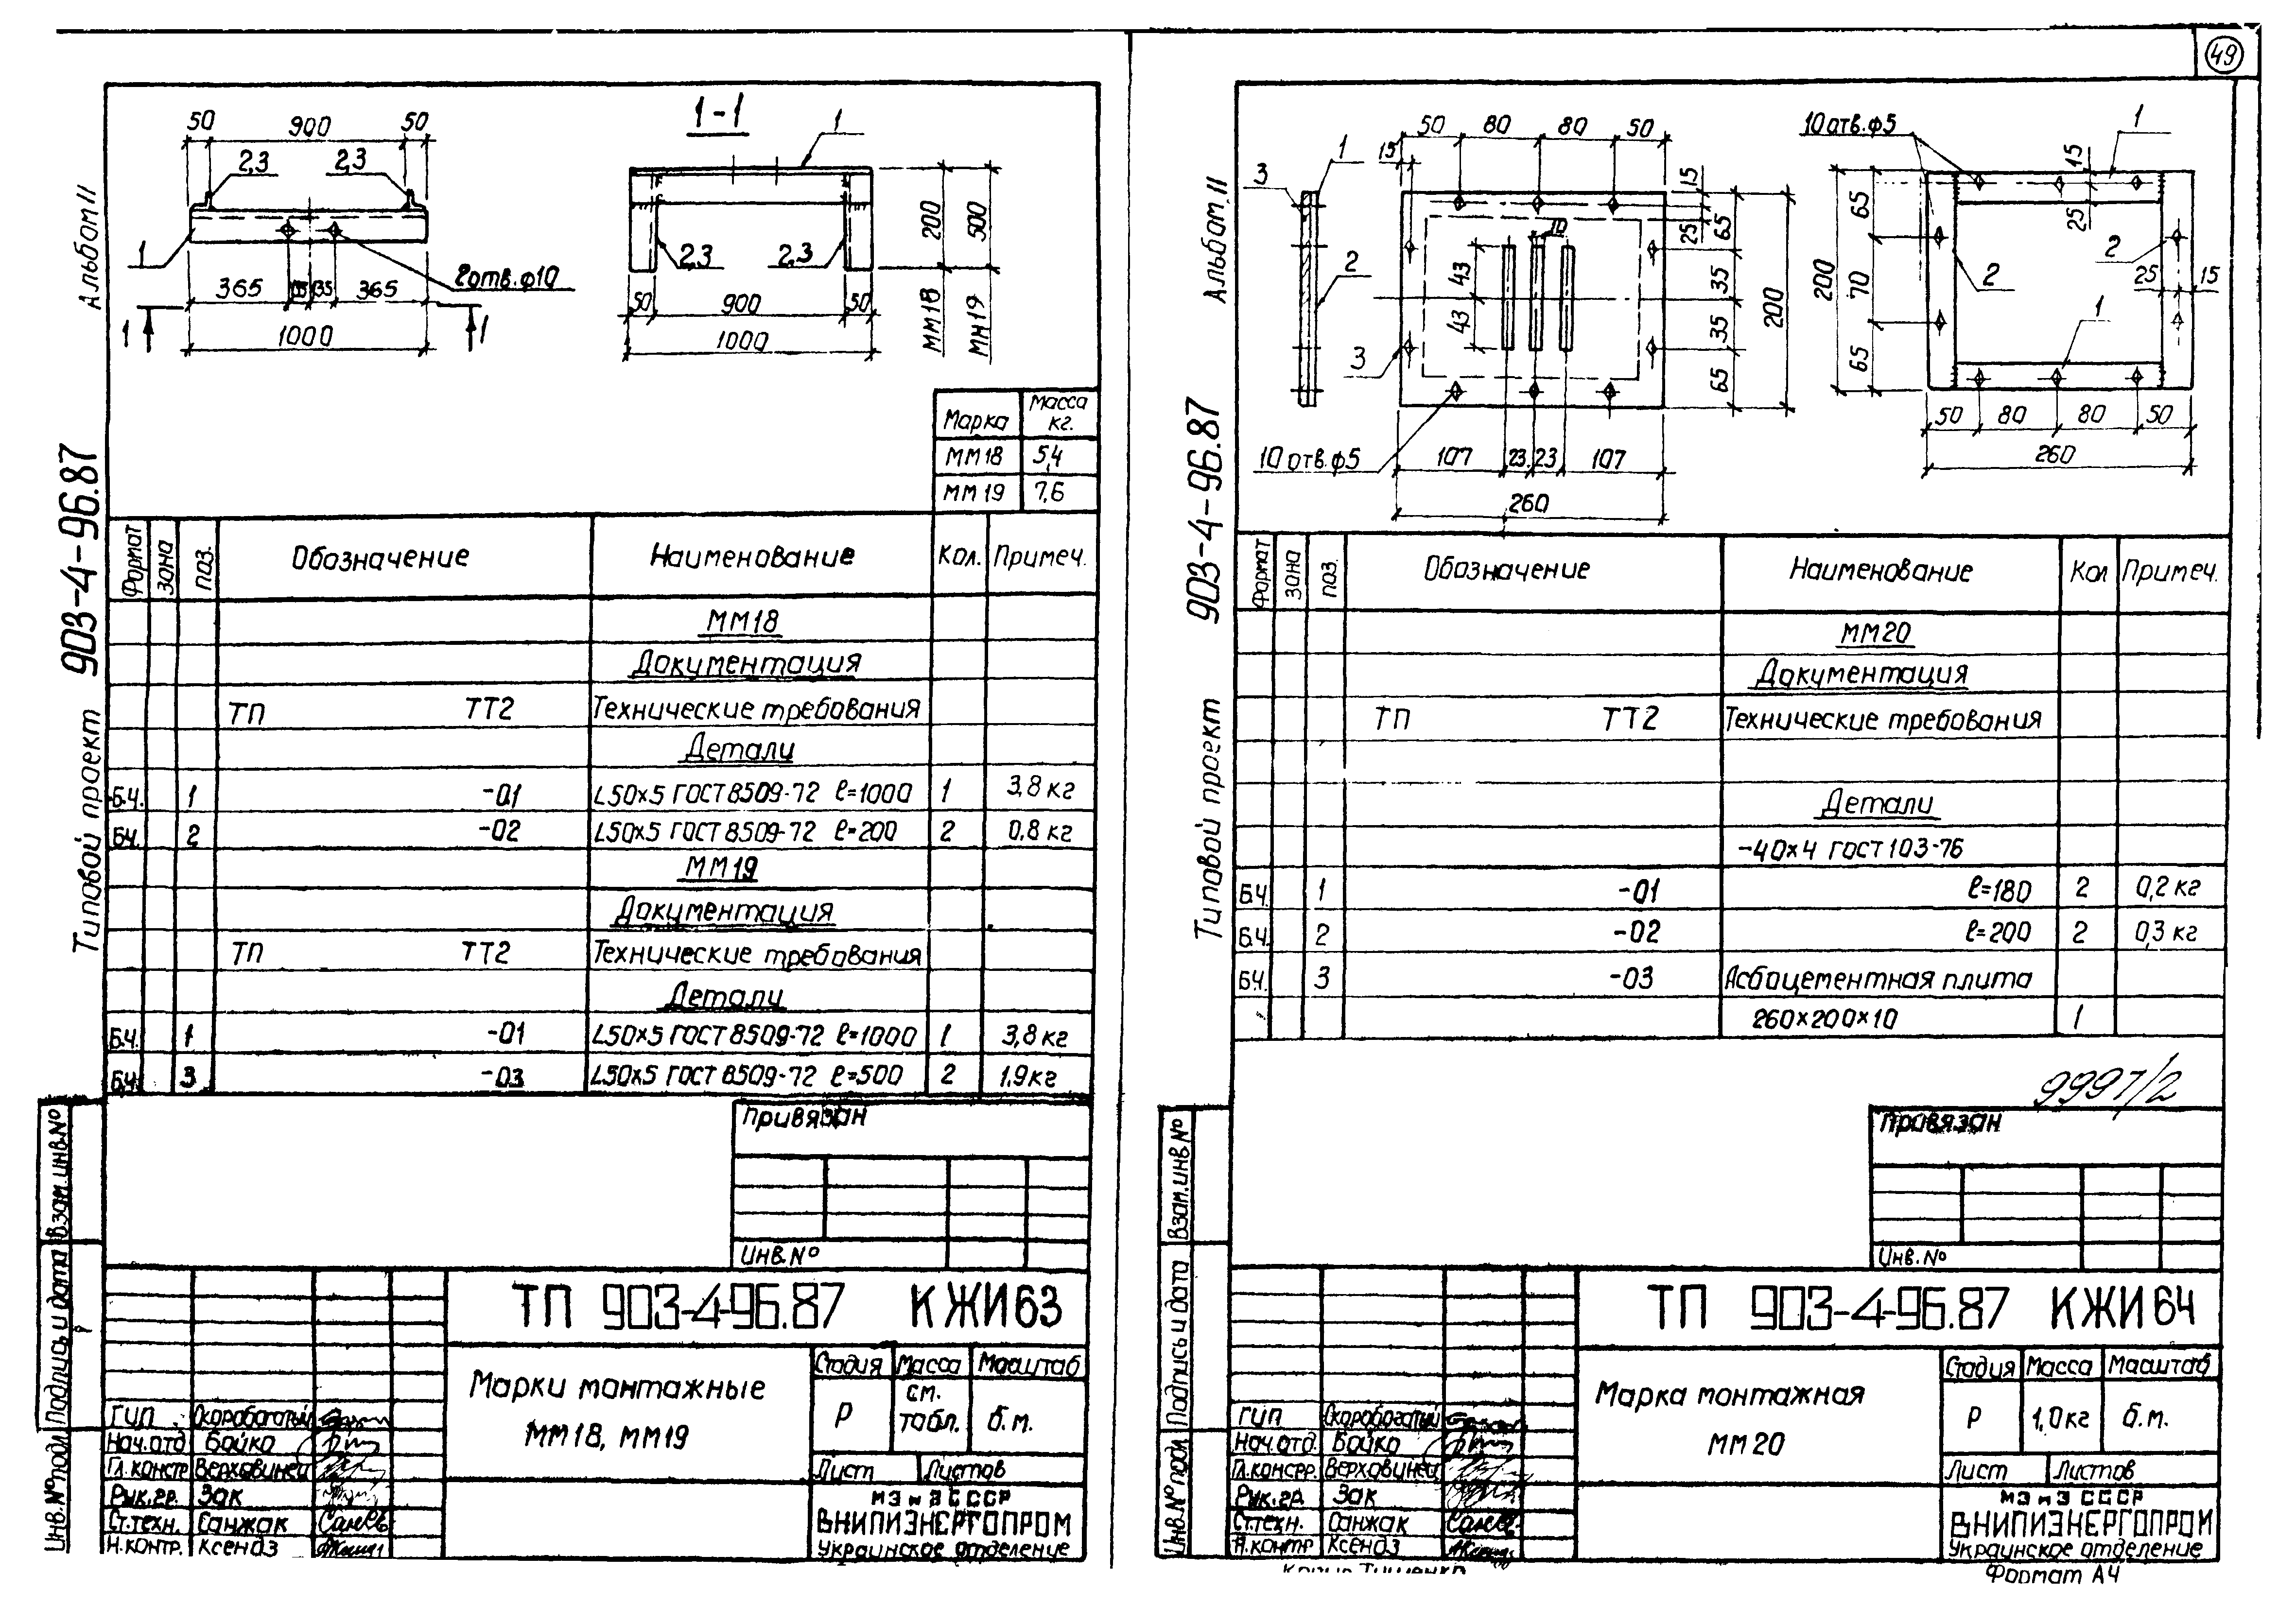 49
Альбом II
Типовой проект 903-4-96.87
50 900 50
2,3 2,3
1
2отв.ф10
365 35 35 365
1 1
1000
1-1
1
2,3 2,3
200 500
50 900 50
1000
ММ18 МН19
Марка Масса кг.
ММ18 5,4
ММ19 7,6
Формат Зона Поз. Обозначение Наименование Кол. Примеч.
ММ18
Документация
ТП ТТ2 Технические требования
Детали
Б.Ч. 1 -01 L50×5 ГОСТ 8509-72 ℓ=1000 1 3,8 кг
БЧ. 2 -02 L50×5 ГОСТ 8509-72 ℓ=200 2 0,8 кг
ММ19
Документация
ТП ТТ2 Технические требования
Детали
Б.Ч. 1 -01 L50×5 ГОСТ 8509-72 ℓ=1000 1 3,8 кг
Б.Ч. 3 -03 L50×5 ГОСТ 8509-72 ℓ=500 2 1,9 кг
Привязан
Инв.№
Взам.инв.№
Подпись и дата
Инв.№ подл.
ТП 903-4-96.87 КЖИ63
Марки монтажные
ММ18, ММ19
Стадия Масса Масштаб
Р см. табл. б.м.
Лист Листов
МЭ и Э СССР
ВНИПИЭНЕРГОПРОМ
Украинское отделение
ГИП Скоробогатый
Нач.отд Бойко
Гл.констр Верховинец
Рук.гр. Зак
Ст.техн. Санжак
Н.контр. Ксендз
Альбом II
Типовой проект 903-4-96.87
50 80 80 50
15
3 1
2
3
10
43 43
15 25
65 35 35 65
200
10 отв.ф5
107 23 23 107
260
10 отв.ф5
1
15 25
65 70 65
200
2 2
25 15
1
50 80 80 50
260
Формат Зона Поз. Обозначение Наименование Кол Примеч.
ММ20
Документация
ТП ТТ2 Технические требования
Детали
-40×4 ГОСТ 103-76
Б.Ч. 1 -01 ℓ=180 2 0,2 кг
Б.Ч. 2 -02 ℓ=200 2 0,3 кг
БЧ. 3 -03 Асбоцементная плита
260×200×10 1
9997/2
Привязан
Инв.№
Взам.инв.№
Подпись и дата
Инв.№ подл
ТП 903-4-96.87 КЖИ64
Марка монтажная
ММ20
Стадия Масса Масштаб
Р 1,0кг б.м.
Лист Листов
МЭ и Э СССР
ВНИПИЭНЕРГОПРОМ
Украинское отделение
ГИП Скоробогатый
Нач.отд. Бойко
Гл.констр. Верховинец
Рук.гр. Зак
Ст.техн. Санжак
Н.контр Ксендз
Формат А4